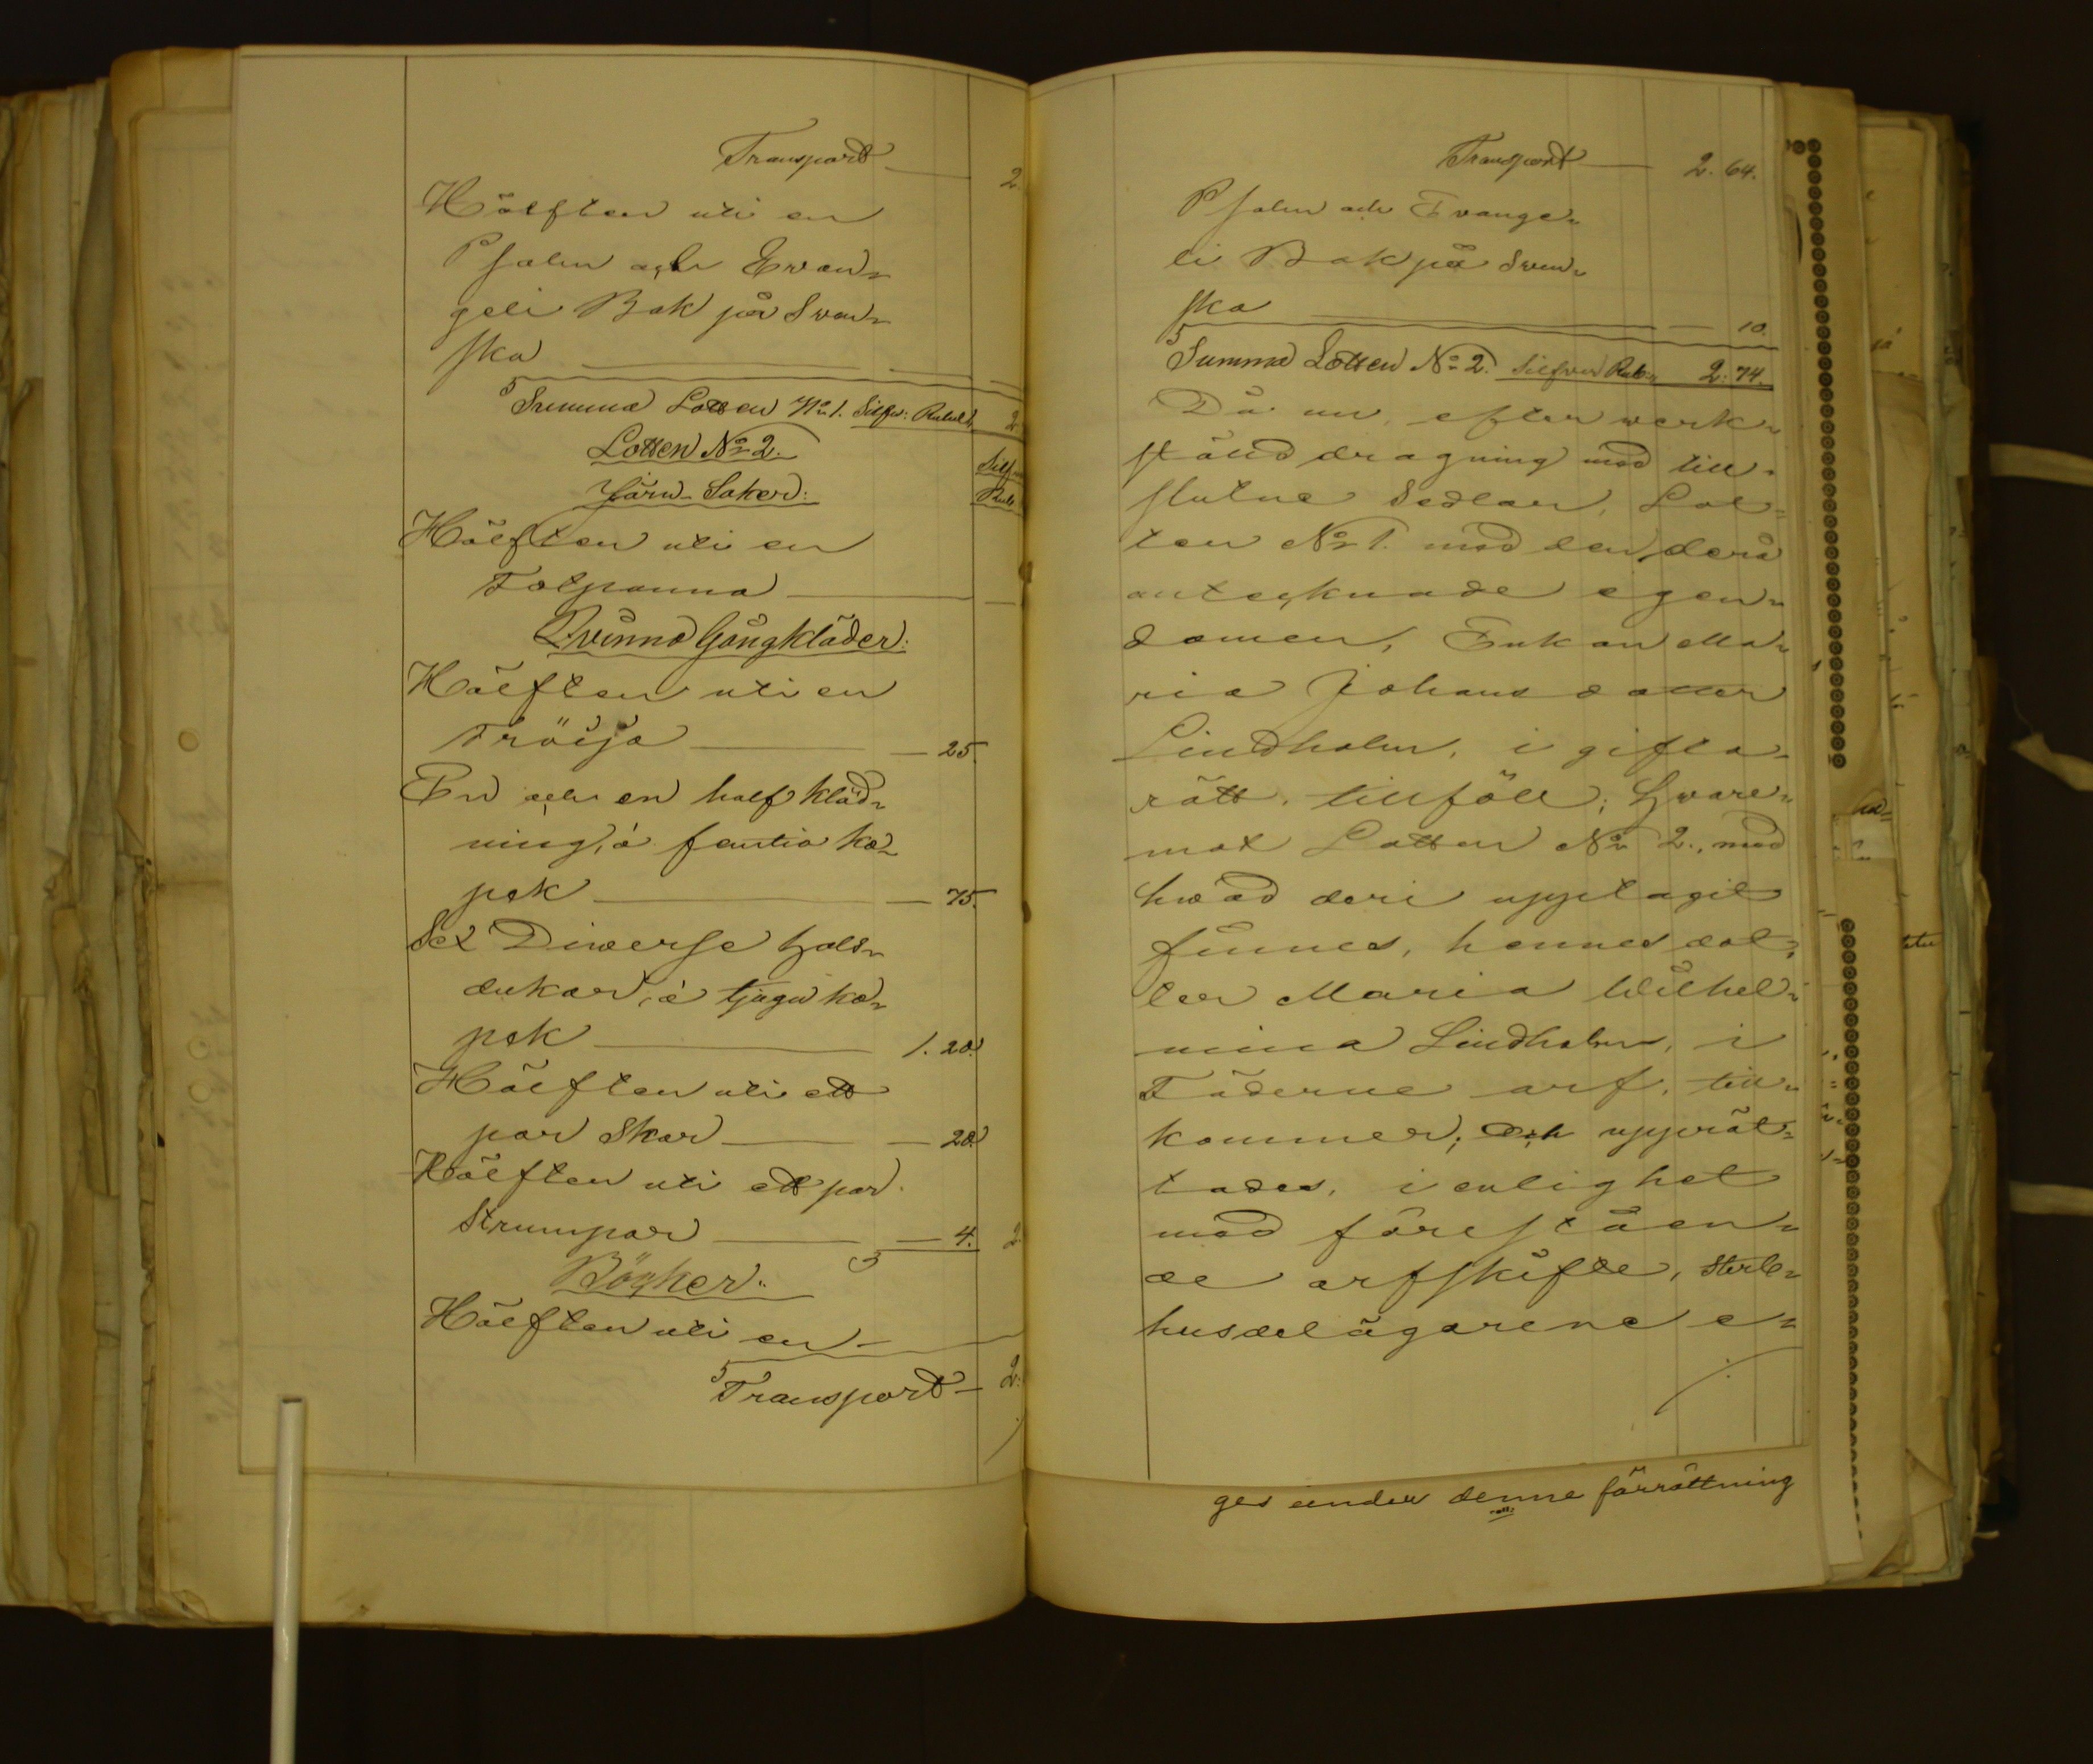 Transport — 2
Hälften uti en
Psalm och Evan=
geli Bok på Sven=
ska
Summa Lotten No 1. Silfv: Rubel 2
Lotten No 2.
Silf
Järn-Saker:
Rub
Hälften uti en
Fotpanna
Qvinno Gångkläder:
Hälften uti en
Tröija — 25.
En och en half kläd=
ning, à femtio ko=
pek — 75.
Sex Diwerse hals=
dukar, à tjugu ko=
pek — 1. 20.
Hälften uti ett
par Skor — 20.
Hälften uti ett par
Strumpor — 4. 2
Böcker:
Hälften uti en
Transport — 2.
Transport — 2. 64.
Psalm och Evange=
li Bok på Sven=
ska — 10.
Summa Lotten No 2. Silfver Rub= 2. 74.
Då nu, efter werk=
stäld dragning med till=
slutne Sedlar, Lot=
ten No 1. med den derå
antecknade egen=
domen, Enkan Ma=
ria Johansdotter
Lindholm, i gifto=
rätt, tillföll; Hware=
mot Lotten No 2., med
hwad deri upptagit
finnes, hennes dot=
ter Maria Wilhel=
mina Lindholm, i
Fäderne arf, till=
kommer; Och upprät=
tades, i enlighet
med föreståen=
de arfskifte, Sterb=
husdelägarene e=
ges under denne förrättning